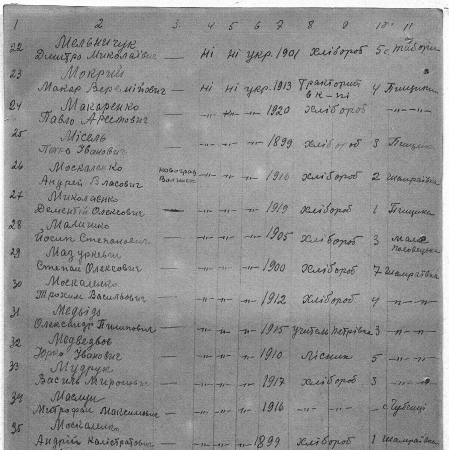 1 2 3 4 5 6 7 8 9 10 11
22 Мельничук
Дмитро Миколайович — Ні Ні укр. 1901 Хлібороб 5 с. Табори
23 Мокрий
Макар Веремійович — Ні Ні укр. 1913 Тракторист 4 Пищики
24 Макаренко
Павло Арсетович — -"- -"- -"- 1920 Хлібороб — -"-
25 Місель
Іванович — -"- -"- -"- 1899 Хлібороб 3
26 Москаленко Новоград
Андрій Власович -"- -"- -"- 1910 Хлібороб 2 Шамраївка
27 Миколаєнко
Дементій Олексович — -"- -"- -"- 1919 Хлібороб 1 Пищики
28 Малишко
Йосип Степанович — -"- -"- -"- 1905 Хлібороб 3 Мала
29
Степан Олексович — -"- -"- -"- 1900 Хлібороб 7 Шамраївка
30 Москаленко
Трохим Васильович — -"- -"- -"- 1912 Хлібороб 4 -"-
31 Медвідь
Олександр Пилипович — -"- -"- -"- 1915 учитель 3 -"-
32 Медведєв
Юрко Іванович — -"- -"- -"- 1910 Лісник 5 -"-
33 Мудрук
Василь Миронович — -"- -"- -"- 1917 Хлібороб 3 -"-
34
Митрофан Максимович — -"- -"- -"- 1916 -"-
35 Москаленко
Андрій Калістратович — -"- -"- -"- 1899 Хлібороб 1 Шамраївка